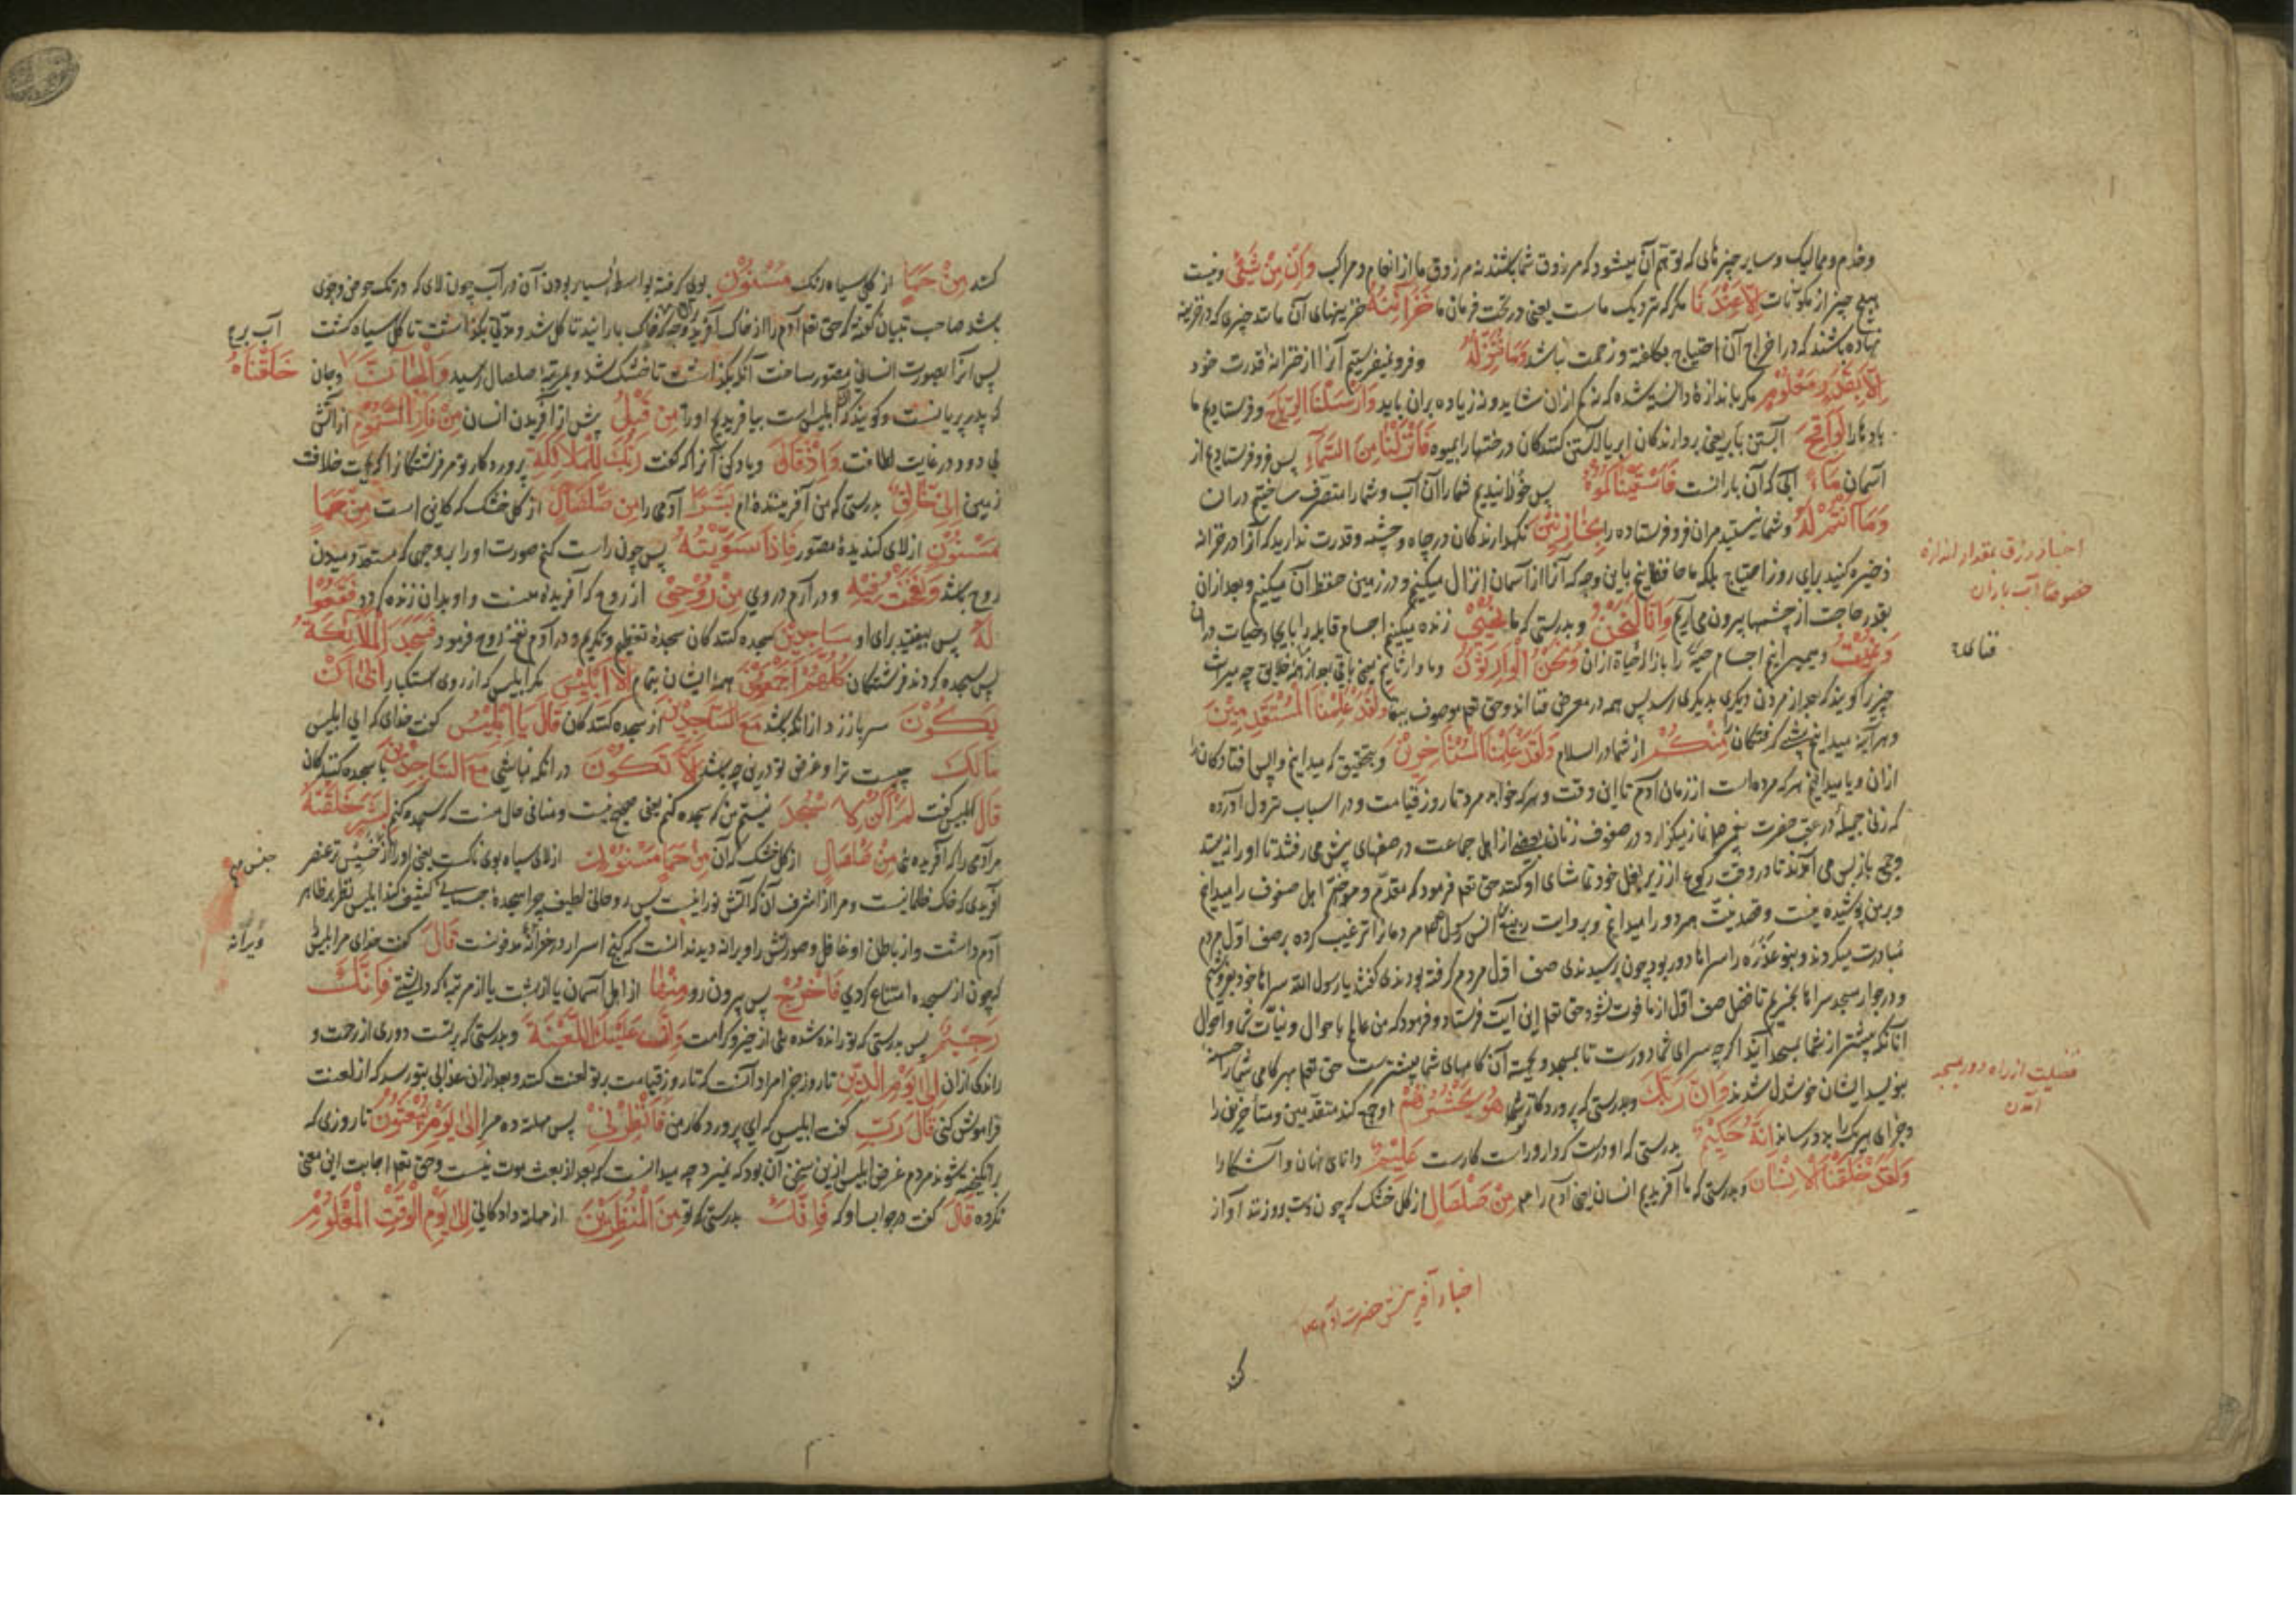 وخدم و ممالیک و سایر چیزهائی که توهم آن میشود که مرزوق شما باشند نه مرزوق ما از انعام و مراکب وَاِنْ مِنْ شَیْءٍ و نیست
هیچ چیز از مکونات اِلّا عِنْدَنَا مگر که نزدیک ماست یعنی در تحت فرمان ما خَزَائِنُهُ خزینهای آن مانند چیزی که در خزینه
نهاده باشند که در اخراج آن احتیاج بکلفة و زحمت نباشد وَمَا نُنَزِّلُهُ و فرو نمیفرستیم آنرا از خزانهٔ قدرت خود
اِلّا بِقَدَرٍ مَعْلُومٍ مگر باندازهٔ دانسته شده که نه کم ازان شاید و نه زیاده بران باید وَاَرْسَلْنَا الرِّیَاحَ و فرستادیم ما
بادها را لَوَاقِحَ آبستن بابر یعنی بردارندگان ابر یا آبستن کنندکان درختها را بمیوه فَاَنْزَلْنَا مِنَ السَّمَاءِ پس فرو فرستادیم از
آسمان مَاءً آبی که آن بارانست فَاَسْقَیْنَاکُمُوهُ پس خورانیدیم شما را آن آب و شما را متصرف ساختیم دران
وَمَا اَنْتُمْ لَهُ و شما نیستید مران فرو فرستاده را بِخَازِنِینَ نگهدارندگان در چاه و چشمه و قدرت ندارید که آنرا در خزانه
ذخیره کنید برای روز احتیاج بلکه ما حافظانیم باین وجه که آنرا از آسمان انزال میکنیم و در زمین حفظ آن میکنیم و بعد ازان
بقدر حاجت از چشمها بیرون می آریم وَاِنَّا لَنَحْنُ و بدرستی که ما نُحْیِی زنده میکنیم اجسام قابله را بایجاد حیات دران
وَنُمِیتُ و میمیرانیم اجسام حیه را بازاله حیاة ازان وَنَحْنُ الْوَارِثُونَ و ما وارثانیم یعنی باقی بعد از همه خلایق چه میراث
چیزی را گویند که بعد از مردن دیگری بدیگری رسد پس همه در معرض فنا اند و حق تعم موصوف ببقا وَلَقَدْ عَلِمْنَا الْمُسْتَقْدِمِینَ
و هر آینه میدانیم پیش گرفتگان مِنْکُمْ از شما در اسلام وَلَقَدْ عَلِمْنَا الْمُسْتَأْخِرِینَ و بتحقیق که میدانیم واپس افتادگان را
ازان و یا میدانیم هر که مرده است از زمان آدم تا این وقت و هر که خواهد مرد تا روز قیامت و در اسباب نزول آورده
که زنی جمیله در عقب حضرت پیغمبر صلم نماز میگزارد در صفوف زنان بعضی از اهل جماعت در صفهای پیش می رفتند تا او را نبینند
و جمعی باز پس می آمدند تا در وقت رکوع از زیر بغل خود تماشای او کنند حق تعم فرمود که مقدّم و موخّر اهل صفوف را میدانیم
و برمن پوشیده نیست و قصد نیت هر دو را میدانم و بروایت ربیع انس رسول صلم مردمانرا ترغیب کرده بر صف اول مردم
مبادرت میکردند و بنو عذره را سراها دور بود چون برسیدندی صف اول مردم گرفته بودندی گفتند یا رسول الله سراها خود بفروشیم
و در جوار مسجد سراها بخریم تا فضل صف اول از ما فوت نشود حق تعم این آیت فرستاد و فرمود که من عالم باحوال و نیات شما و احوال
آنانکه پیشتر از شما بمسجد آیند اگرچه سرای شما دورست تا بمسجد و لیکن آن گامهای شما بیشترست حق تعم بهر گامی شما را حسنه
بنویسد ایشان خوشدل شدند وَاِنَّ رَبَّکَ و بدرستی که پروردگار شما هُوَ یَحْشُرُهُمْ او جمع کند متقدمین و متأخرین را
و جزای هر یک را بدو رساند اِنَّهُ حَکِیمٌ بدرستی که او درست کردار و راست کارست عَلِیمٌ دانای نهان و آشکارا
وَلَقَدْ خَلَقْنَا الْاِنْسَانَ و بدرستی که ما آفریدیم انسان یعنی آدم را عم مِنْ صَلْصَالٍ از گل خشک که چون دست برو زنند آواز
اخبار رزق بمقدار اندازه
خصوصاً آب باران
فضیلت از راه دور بمسجد
آمدن
اخبار آفرینش حضرت آدم عم
کند مِنْ حَمَإٍ از گل سیاه رنگ مَسْنُونٍ بوی گرفته بواسطه بسیار بودن آن در آب چون لای که در تک حوض و جوی
باشد صاحب تبیان گوید که حق تعم آدم را از خاک آفرید و خاک بارانید تا گل شد و مدتی بگذاشت تا گل سیاه گشت
پس آنرا بصورت انسانی مصور ساخت آنکه بگذاشت تا خشک شد و بمرتبهٔ صلصال رسید وَالْجَانَّ و جان
که پدر پریانست و گویند که ابلیس است بیافریدیم او را مِنْ قَبْلُ پیش از آفریدن انسان مِنْ نَارِ السَّمُومِ از آتش
بی دود در غایت لطافت وَاِذْ قَالَ و یاد کن آنرا که گفت رَبُّکَ لِلْمَلَائِکَةِ پروردگار تو مر فرشتگانرا که بجهت خلافت
زمین اِنِّی خَالِقٌ بدرستی که من آفریننده ام بَشَرًا آدمی را مِنْ صَلْصَالٍ از گل خشک که کاینی است مِنْ حَمَإٍ
مَسْنُونٍ از لای گندیدهٔ مصور فَاِذَا سَوَّیْتُهُ پس چون راست کنم صورت او را بوجهی که مستعد دمیدن
روح باشد وَنَفَخْتُ فِیهِ و درآرم در وی مِنْ رُوحِی از روح که آفریده منست و او بدان زنده گردد فَقَعُوا
لَهُ پس بیفتید برای او سَاجِدِینَ سجده کنندگان سجدهٔ تعظیم و تکریم و در آدم نفخه روح فرمود فَسَجَدَ الْمَلَائِکَةُ
پس سجده کردند فرشتگان کُلُّهُمْ اَجْمَعُونَ همهٔ ایشان بتمام اِلَّا اِبْلِیسَ مگر ابلیس که از روی استکبار اَبَی اَنْ
یَکُونَ سرباز زد از آنکه باشد مَعَ السَّاجِدِینَ از سجده کنندگان قَالَ یَا اِبْلِیسُ گفت خدای که ای ابلیس
مَالَکَ چیست ترا و غرض تو درین چه باشد اَلَّا تَکُونَ درانکه نباشی مَعَ السَّاجِدِینَ با سجده کنندگان
قَالَ ابلیس گفت لَمْ اَکُنْ لِاَسْجُدَ نیستم من که سجده کنم یعنی صحیح نیست و منافی حال منست که سجده کنم لِبَشَرٍ خَلَقْتَهُ
مر آدمی را که آفریده ئی مِنْ صَلْصَالٍ از گل خشک که آن مِنْ حَمَإٍ مَسْنُونٍ از لای سیاه بوی ناکست یعنی او را از خسیس تر عنصر
آفریدی که خاک ظلمانیست و مرا از اشرف آن که آتش نورانیست پس روحانی لطیف چرا سجدهٔ جسمانی کثیف کند ابلیس نظر بر ظاهر
آدم داشت و از باطن او غافل و صورتش را ویرانه دید ندانست که گنج اسرار در خرابه مدفونست قَالَ گفت خدای مر ابلیس را
که چون از سجده امتناع کردی فَاخْرُجْ پس بیرون رو مِنْهَا از اهل آسمان یا از بهشت یا از مرتبه که داشتی فَاِنَّکَ
رَجِیمٌ پس بدرستی که تو رانده شده ئی از خیر و کرامت وَاِنَّ عَلَیْکَ اللَّعْنَةَ و بدرستی که برتست دوری از رحمت و
راندکی ازان اِلَی یَوْمِ الدِّینِ تا روز جزا مراد آنست که تا روز قیامت بر تو لعنت کنند و بعد ازان عذابی بتو رسد که از لعنت
فراموش کنی قَالَ رَبِّ گفت ابلیس که ای پروردگار من فَاَنْظِرْنِی پس مهلت ده مرا اِلَی یَوْمِ یُبْعَثُونَ تا روزی که
برانگیخته شوند مردم غرض ابلیس ازین سخن آن بود که نمیرد چه میدانست که بعد از بعث موت نیست و حق تعم اجابت این معنی
نکرده قَالَ گفت در جواب او که فَاِنَّکَ بدرستی که تو مِنَ الْمُنْظَرِینَ از مهلت دادگانی اِلَی یَوْمِ الْوَقْتِ الْمَعْلُومِ
خَلَقْنَاهُ
ویرانه